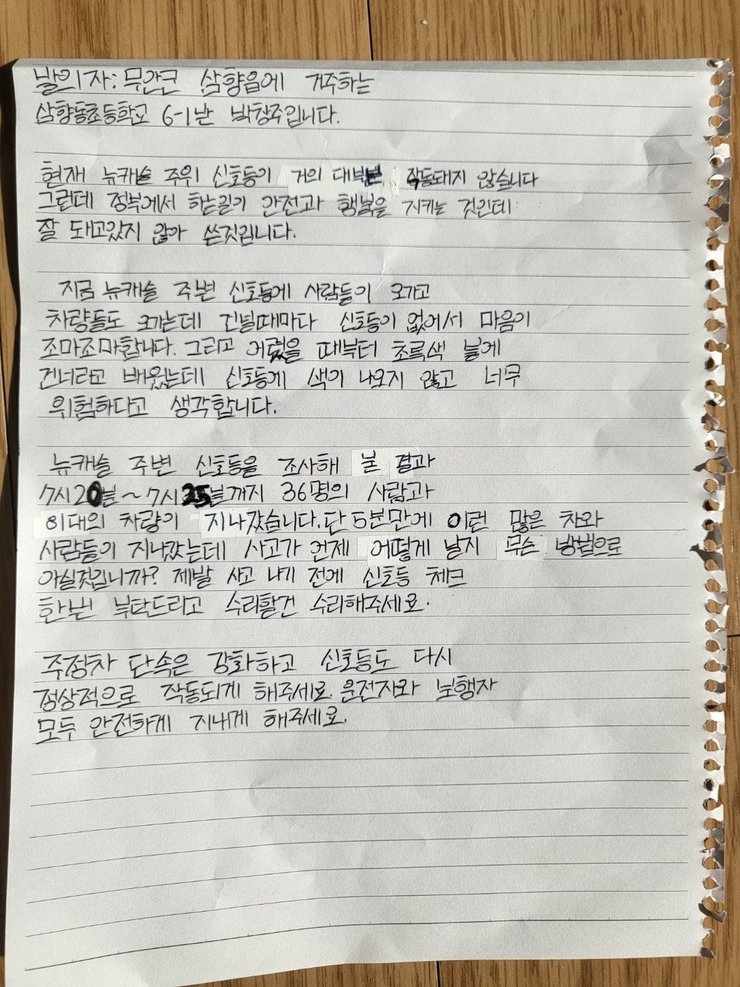 발의자: 무안군 삼향읍에 거주하는
삼향동초등학교 6-1반 박창주입니다.
현재 뉴캐슬 주위 신호등이 거의 대부분 작동돼지 않습니다
그런데 정부에서 하는일이 안전과 행복을 지키는 것인데
잘 돼고있지 않아 쓴것입니다.
지금 뉴캐슬 주변 신호등에 사람들이 오가고
차량들도 오가는데 건널때마다 신호등이 없어서 마음이
조마조마합니다. 그리고 어렸을 때부터 초록색 불에
건너라고 배웠는데 신호등에 색이 나오지 않고 너무
위험하다고 생각합니다.
뉴캐슬 주변 신호등을 조사해 본 결과
7시20분~7시25분까지 36명의 사람과
81대의 차량이 지나갔습니다. 단 5분만에 이런 많은 차와
사람들이 지나갔는데 사고가 언제 어떻게 날지 무슨 방법으로
아실것입니까? 제발 사고 나기 전에 신호등 체크
한번 부탁드리고 수리할건 수리해주세요.
주정차 단속은 강화하고 신호등도 다시
정상적으로 작동되게 해주세요. 운전자와 보행자
모두 안전하게 지내게 해주세요.